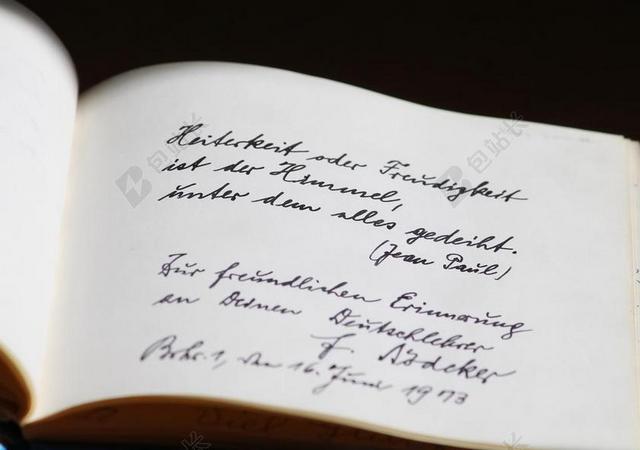 Heiterkeit oder Freudigkeit
ist der Himmel,
unter dem alles gedeiht.
(Jean Paul)
Zur freundlichen Erinnerung
an Deinen Deutschlehrer
F. Bödeker
den 16. Juni 1973
包站长
包站长